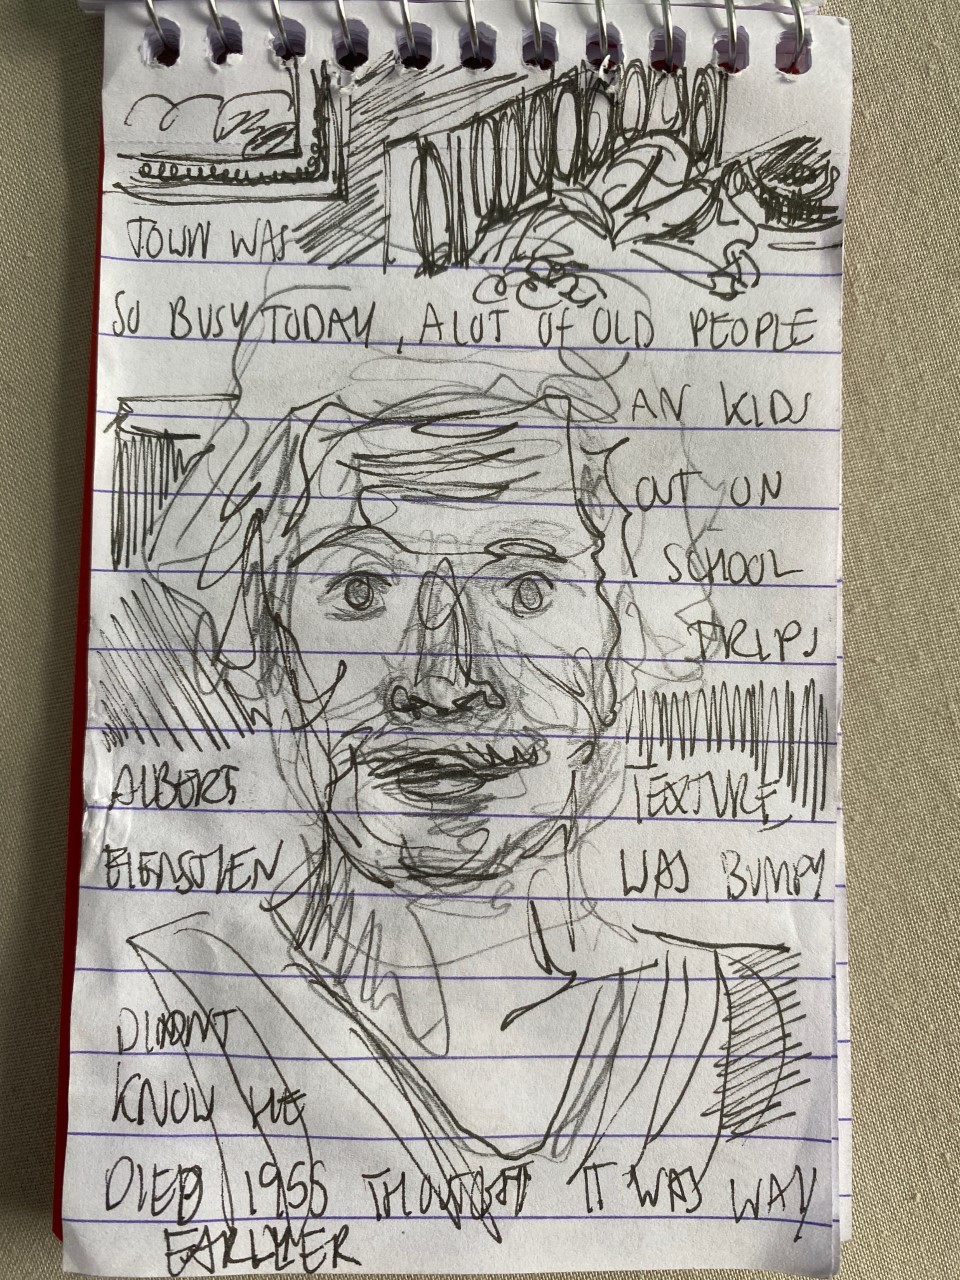 TOWN WAS
SO BUSY TODAY, A LOT OF OLD PEOPLE
AN KIDS
OUT ON
SCHOOL
TRIPS
ALBERT
EIENSTIEN
TEXTURE
WAS BUMPY
DIDNT
KNOW HE
DIED 1955 THOUGHT IT WAS WAY
EARLYIER